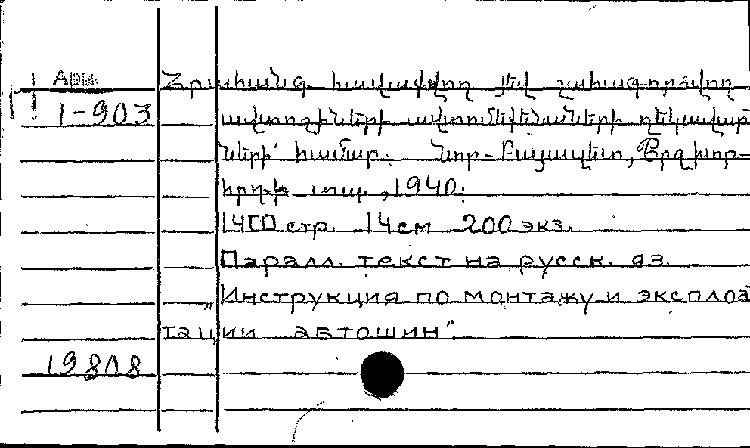 Арм.
1-903
Հրահանգ հավաքվող յեվ շահագործվող
ավտոդողերի ավտոմեքենաների ղեկավար
ների համար. Նոր-Բայազետ,
տպ., 1940.
стр. 14 см 200 экз.
Паралл. текст на русск. яз.
„Инструкция по монтажу и эксплоа
тации автошин".
19808